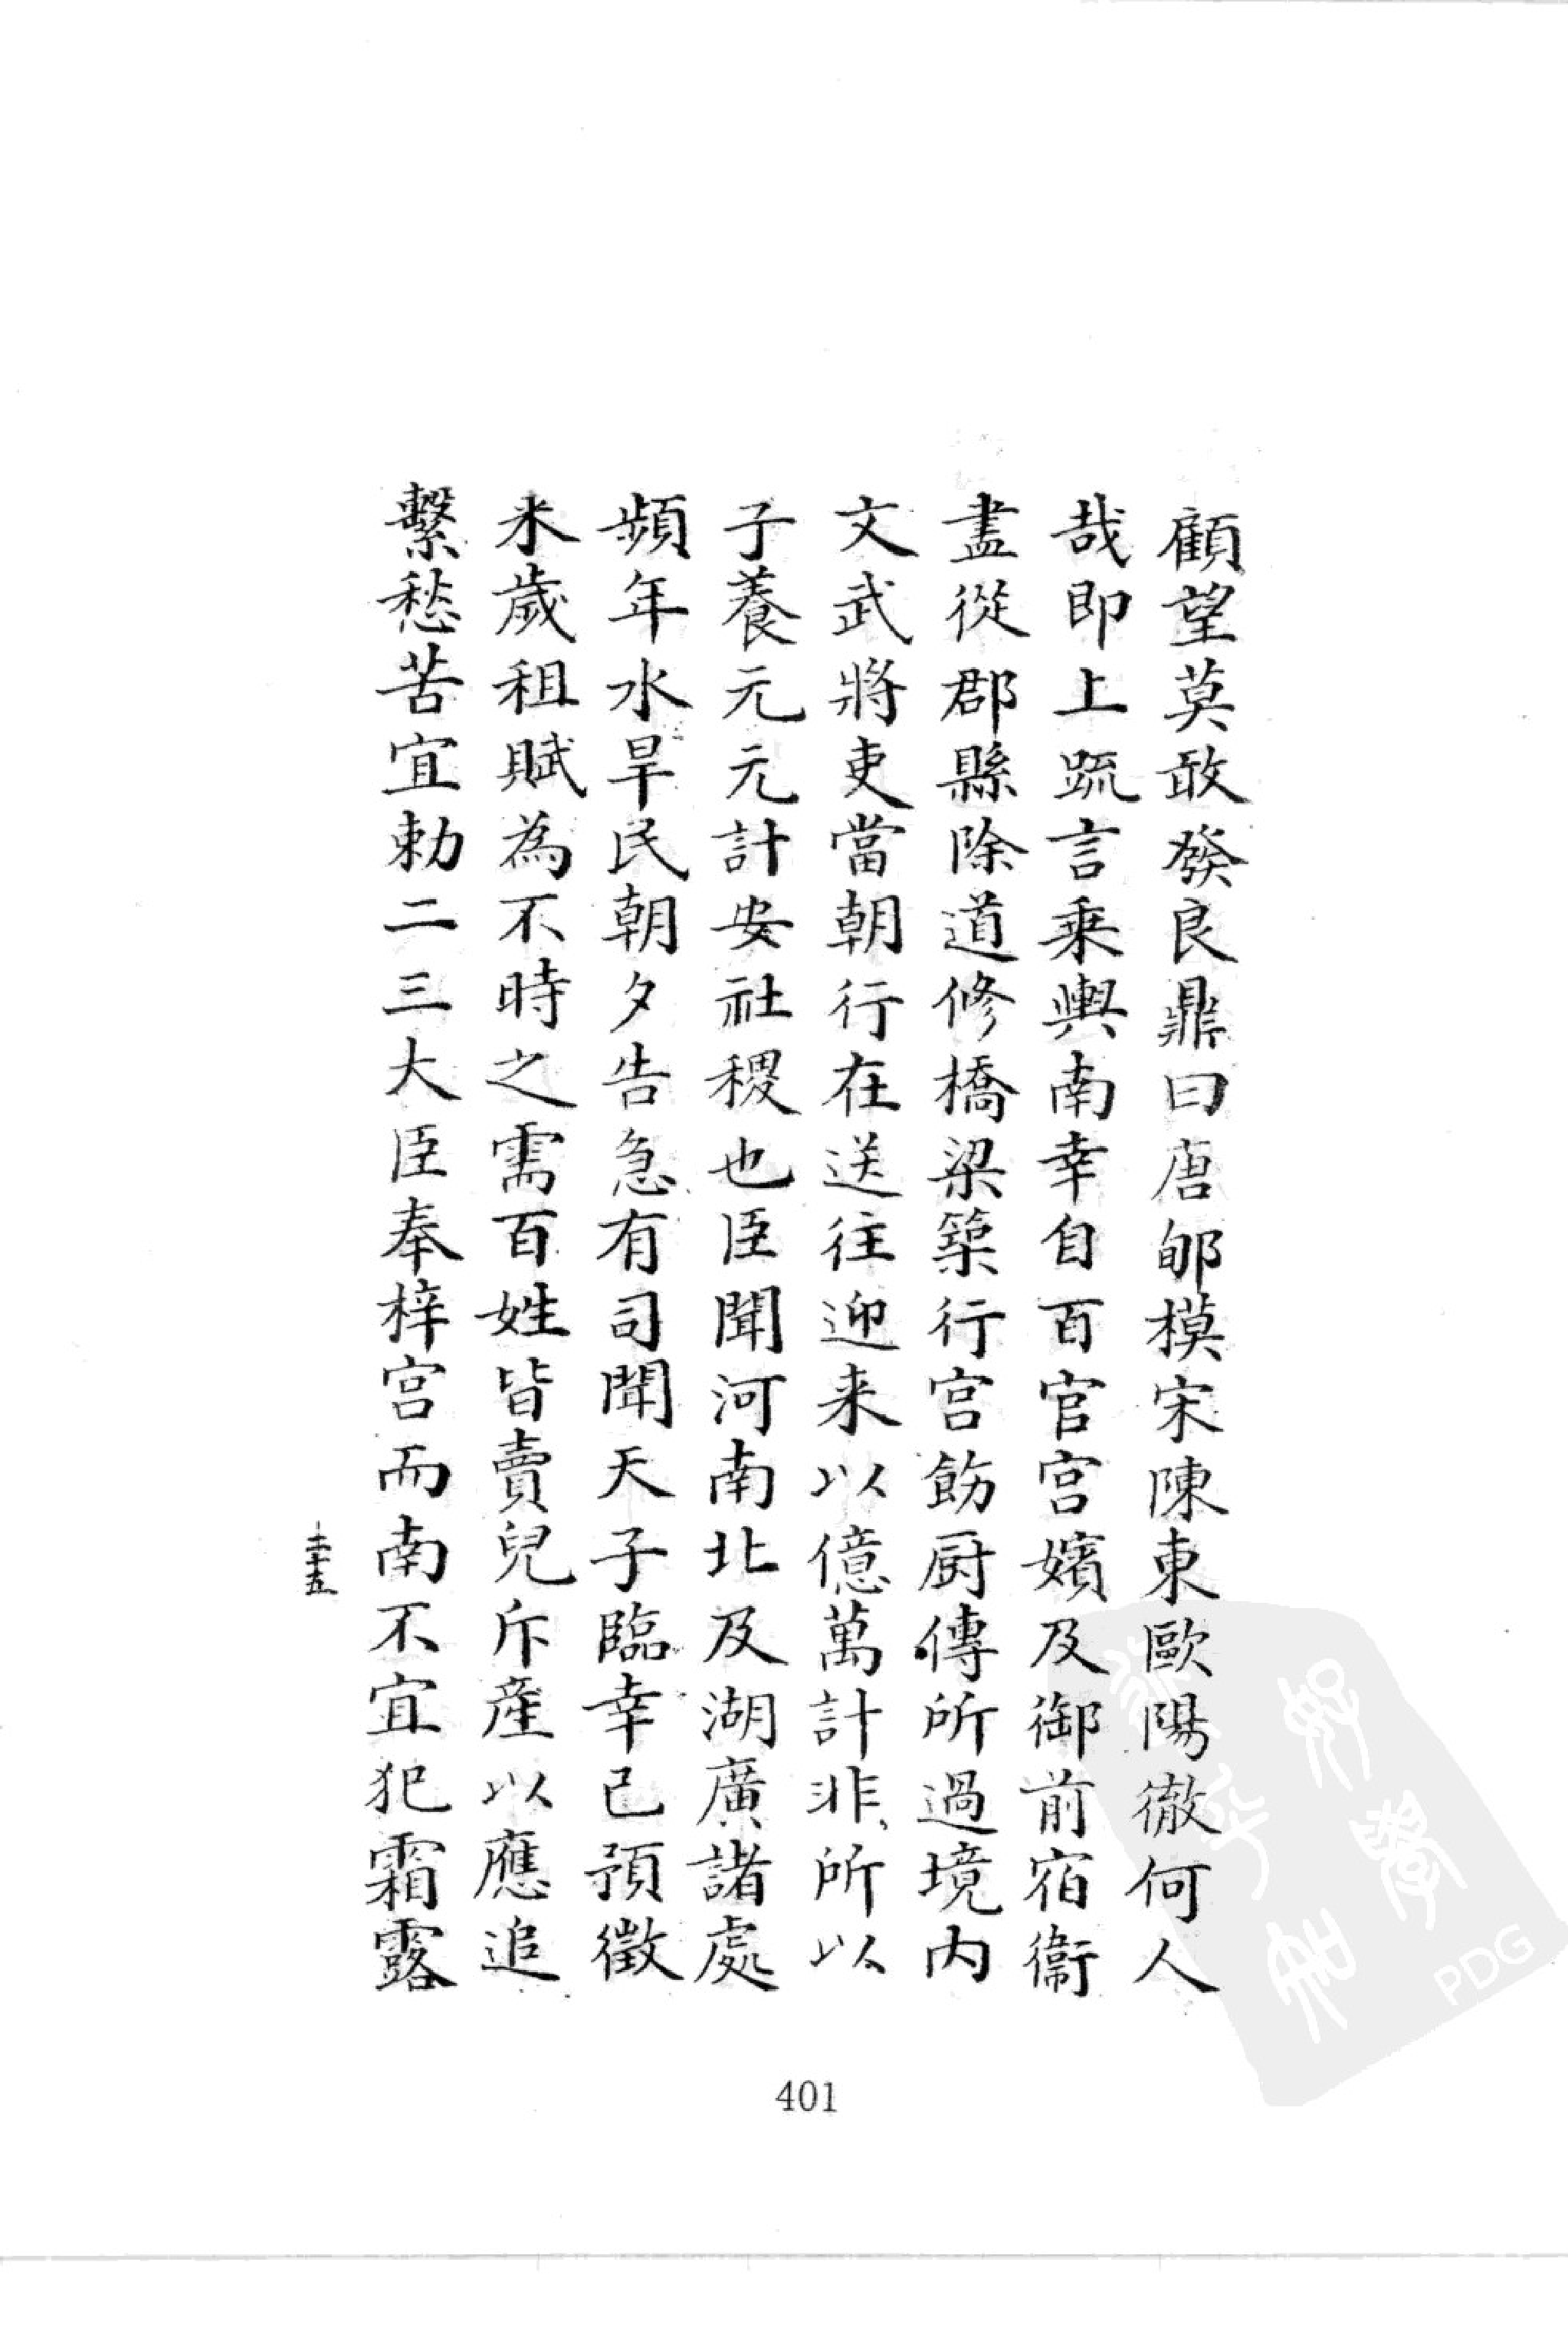 顧望莫敢發良鼎曰唐郇模宋陳東歐陽徹何人
哉即上疏言乘輿南幸自百官宫嬪及御前宿衞
盡從郡縣除道修橋梁築行宫飭厨傳所過境内
文武將吏當朝行在送往迎来以億萬計非所以
子養元元計安社稷也臣聞河南北及湖廣諸處
頻年水旱民朝夕告急有司聞天子臨幸已預徵
米歲租賦為不時之需百姓皆賣兒斥産以應追
繫愁苦宜勅二三大臣奉梓宫而南不宜犯霜露
二十五
401
PDG